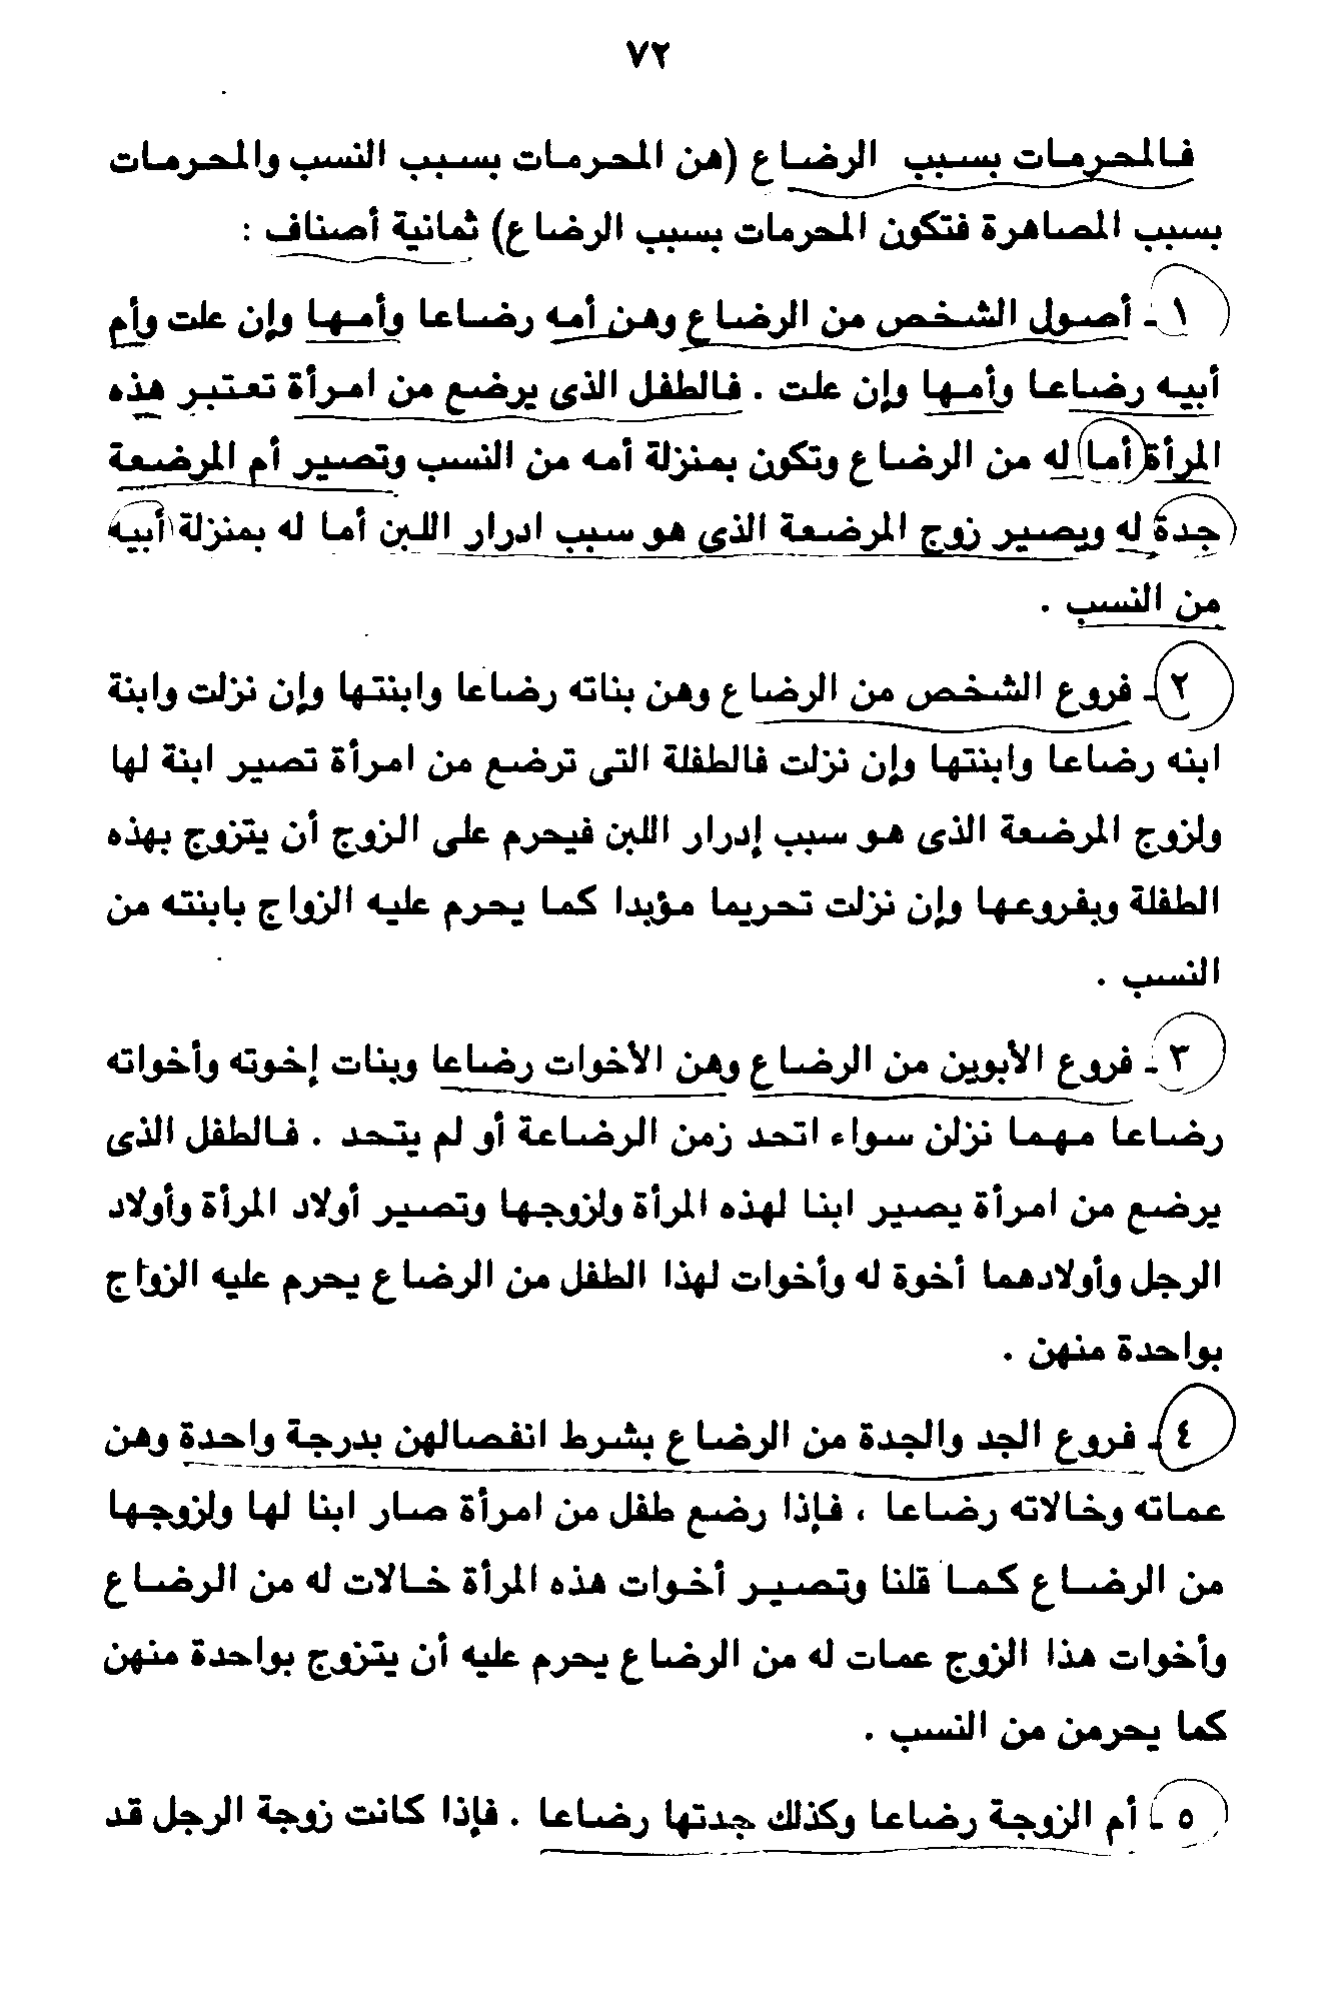 ٧٢
فالمحرمات بسبب الرضاع (هن المحرمات بسبب النسب والمحرمات
بسبب المصاهرة فتكون المحرمات بسبب الرضاع) ثمانية أصناف :
١ - أصول الشخص من الرضاع وهن أمه رضاعا وأمها وإن علت وأم
أبيه رضاعا وأمها وإن علت . فالطفل الذى يرضع من امرأة تعتبر هذه
المرأة أما له من الرضاع وتكون بمنزلة أمه من النسب وتصير أم المرضعة
جدة له ويصير زوج المرضعة الذى هو سبب ادرار اللبن أما له بمنزلة أبيه
من النسب .
٢ - فروع الشخص من الرضاع وهن بناته رضاعا وابنتها وإن نزلت وابنة
ابنه رضاعا وابنتها وإن نزلت فالطفلة التى ترضع من امرأة تصير ابنة لها
ولزوج المرضعة الذى هو سبب إدرار اللبن فيحرم على الزوج أن يتزوج بهذه
الطفلة وبفروعها وإن نزلت تحريما مؤبدا كما يحرم عليه الزواج بابنته من
النسب .
٣ - فروع الأبوين من الرضاع وهن الأخوات رضاعا وبنات إخوته وأخواته
رضاعا مهما نزلن سواء اتحد زمن الرضاعة أو لم يتحد . فالطفل الذى
يرضع من امرأة يصير ابنا لهذه المرأة ولزوجها وتصير أولاد المرأة وأولاد
الرجل وأولادهما أخوة له وأخوات لهذا الطفل من الرضاع يحرم عليه الزواج
بواحدة منهن .
٤ - فروع الجد والجدة من الرضاع بشرط انفصالهن بدرجة واحدة وهن
عماته وخالاته رضاعا ، فإذا رضع طفل من امرأة صار ابنا لها ولزوجها
من الرضاع كما قلنا وتصير أخوات هذه المرأة خالات له من الرضاع
وأخوات هذا الزوج عمات له من الرضاع يحرم عليه أن يتزوج بواحدة منهن
كما يحرمن من النسب .
٥ - أم الزوجة رضاعا وكذلك جدتها رضاعا . فإذا كانت زوجة الرجل قد